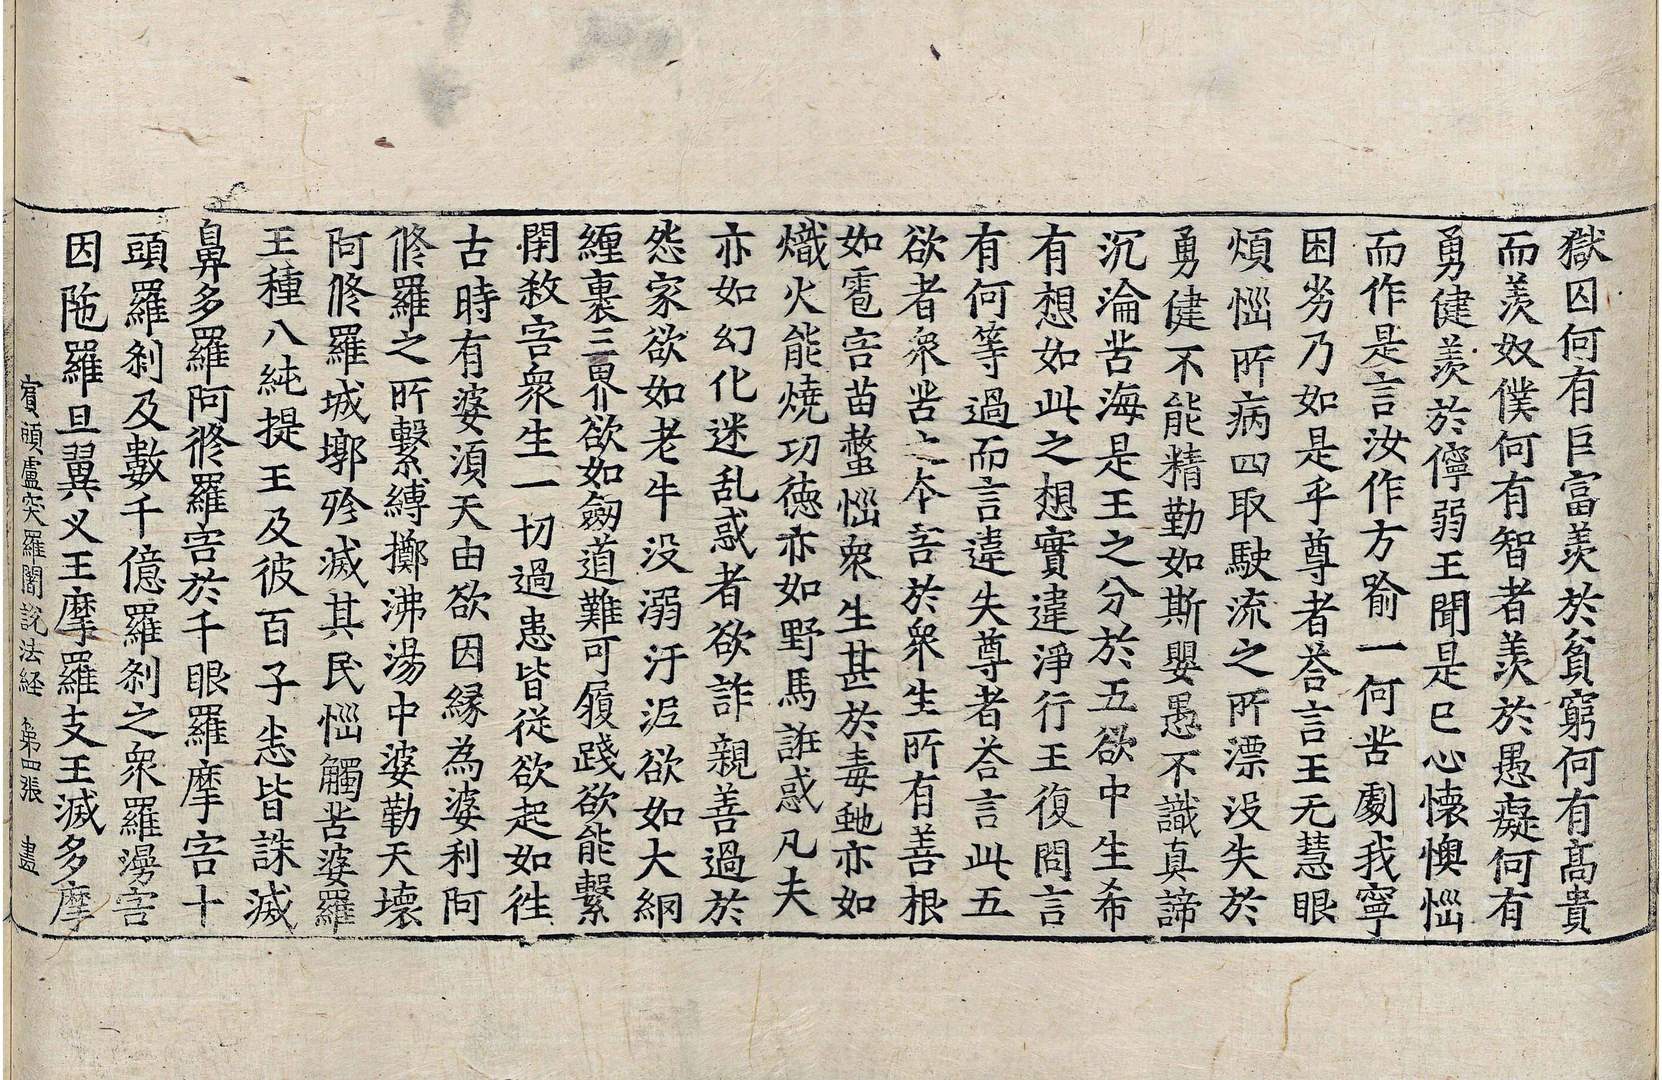 獄囚何有巨富羨於貧窮何有髙貴
而羨奴僕何有智者羨於愚癡何有
勇健羨於儜弱王聞是已心懷懊惱
而作是言汝作方喻一何苦劇我寧
困劣乃如是乎尊者荅言王无慧眼
煩惱所病四取駛流之所漂没失於
勇健不能精勤如斯嬰愚不識真諦
沉淪苦海是王之分於五欲中生希
有想如此之想實違淨行王復問言
有何等過而言違失尊者荅言此五
欲者衆苦之本害於衆生所有善根
如雹害苗螫惱衆生甚於毒虵亦如
熾火能燒功德亦如野馬誑惑凡夫
亦如幻化迷乱惑者欲詐親善過於
怨家欲如老牛没溺汙泥欲如大網
纒裹三界欲如劒道難可履踐欲能繫
閇殺害衆生一切過患皆從欲起如往
古時有婆湏天由欲因縁為婆利阿
修羅之所繫縛擲沸湯中婆勤天壞
阿修羅城墎殄滅其民惱觸苦婆羅
王種八純提王及彼百子恚皆誅滅
鼻多羅阿修羅害於千眼羅摩害十
頭羅剎及數千億羅剎之衆羅漫害
因陁羅旦翼义王摩羅支王滅多摩
賓頭盧突羅闍說法経　第四張　畫